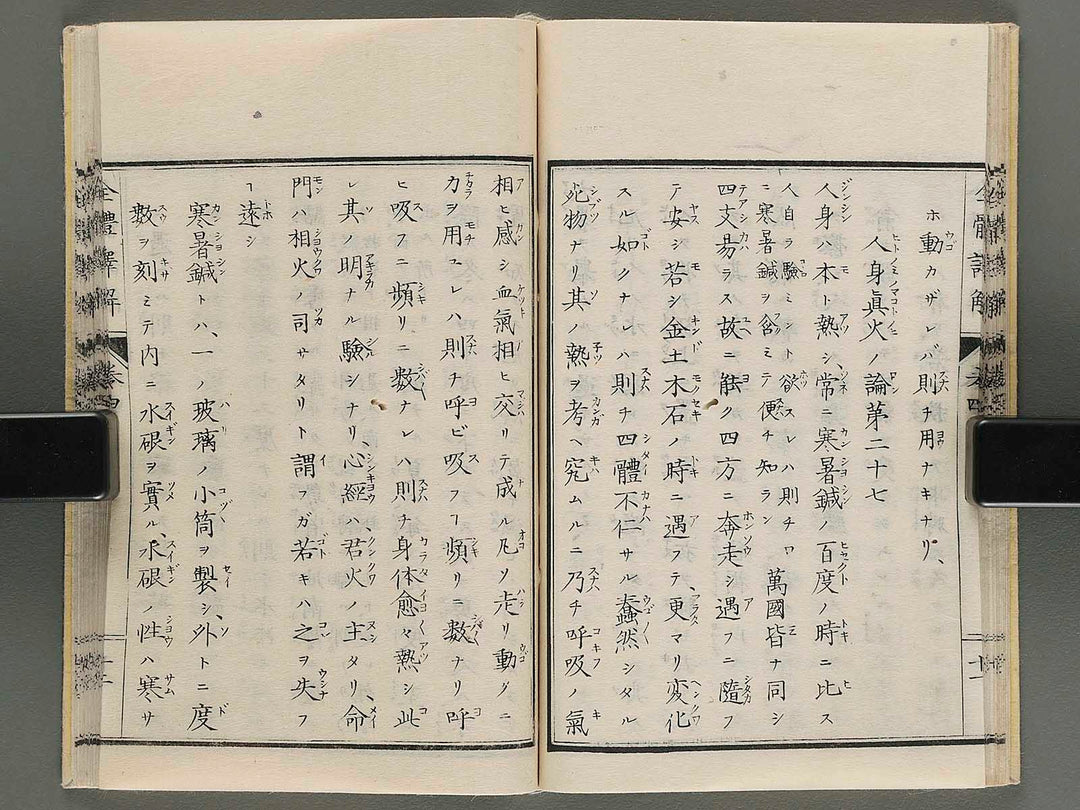 ホ動カザレバ則チ用ナキナリ、
人身眞火ノ論第二十七
人身ハ本ト熱シ常ニ寒暑鍼ノ百度ノ時ニ比ス
人自ラ驗ミント欲スレハ則チ口
ニ寒暑鍼ヲ含ミテ便チ知ラン
萬國皆ナ同シ
四支昜ラス故ニ能ク四方ニ奔走シ遇フニ隨フ
テ安シ若シ金土木石ノ時ニ遇フテ、更マリ変化
スル如クナレハ則チ四體不仁サル蠢然シタル
死物ナリ其ノ熱ヲ考ヘ究ムルニ乃チ呼吸ノ氣
相ヒ感シ血氣相ヒ交リテ成ル凡ソ走リ動クニ
力ヲ用ユレハ則チ呼ビ吸フヿ頻リニ数ナリ呼
ヒ吸フニ頻リニ数ナレハ則チ身体愈々熱シ此
レ其ノ明ナル驗シナリ、心經ハ君火ノ主タリ、命
門ハ相火ノ司サタリト謂フガ若キハ之ヲ失フ
ヿ遠シ
寒暑鍼トハ、一ノ玻璃ノ小筒ヲ製シ、外トニ度
數ヲ刻ミテ内ニ水銀ヲ實ル、水銀ノ性ハ寒サ
全體譯解
巻四
十一